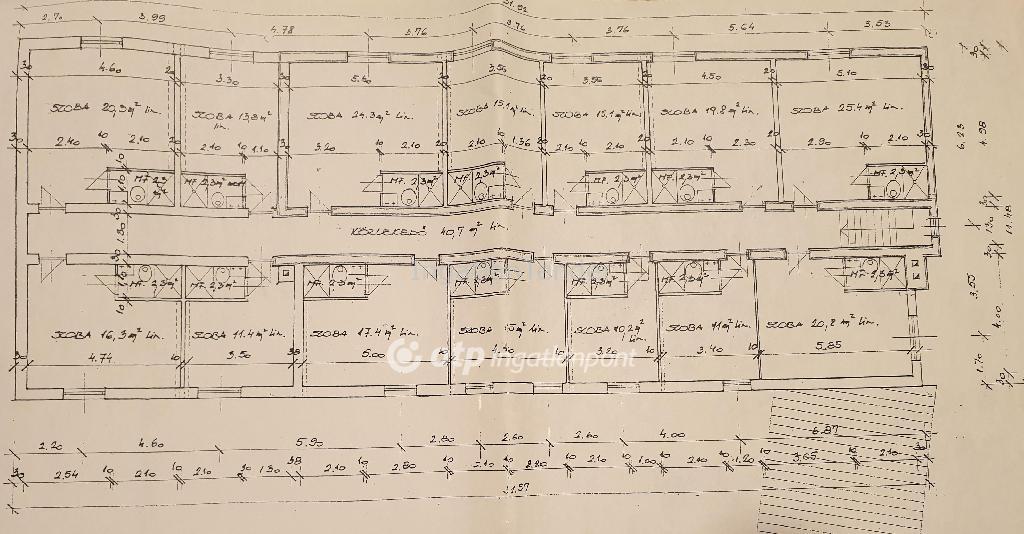 31.92
2.70 3.99 4.78 3.76 3.76 3.76 5.64 3.53
4.60 20 3.30 30 5.60 20 3.56 20 3.56 20 4.50 20 5.10
SZOBA 20,3 m² Lin.
SZOBA 13,8 m² Lin.
SZOBA 24.3 m² Lin.
SZOBA 15,1 m² Lin.
SZOBA 15,1 m² Lin.
SZOBA 19.8 m² Lin.
SZOBA 25.4 m² Lin.
2.40 10 2.10 2.10 10 1.10 3.20 10 2.10 2.10 10 1.36 2.10 10 2.10 10 2.30 2.90 10 2.10
MF. 2,3 m²
MF. 2,3 m²
MF. 2,3 m²
MF. 2,3 m²
MF. 2,3 m²
MF. 2,3 m²
KÖZLEKEDŐ 40,7 m² Lin.
MF. 2,3 m²
MF. 2,3 m²
MF. 2,3 m²
MF. 2,3 m²
MF. 2,3 m²
MF. 2,3 m²
SZOBA 16,3 m² Lin.
SZOBA 11.4 m² Lin.
SZOBA 17.4 m² Lin.
SZOBA Lin.
SZOBA 10,2 m² Lin.
SZOBA 11 m² Lin.
SZOBA 20,8 m² Lin.
4.74 10 3.50 38 5.00 10 3.20 10 3.40 10 5.85
otp ingatlanpont
2.20 4.60 5.90 2.80 2.60 2.60 4.00 6.87
2.54 10 2.10 10 2.10 30 1.30 38 2.10 10 2.80 10 2.10 10 2.20 10 2.10 10 1.00 10 2.10 10 1.20 10 3.65 10 2.10
31.57
6.23 4.98
1.30 11.48
3.55 4.00
1.70 30